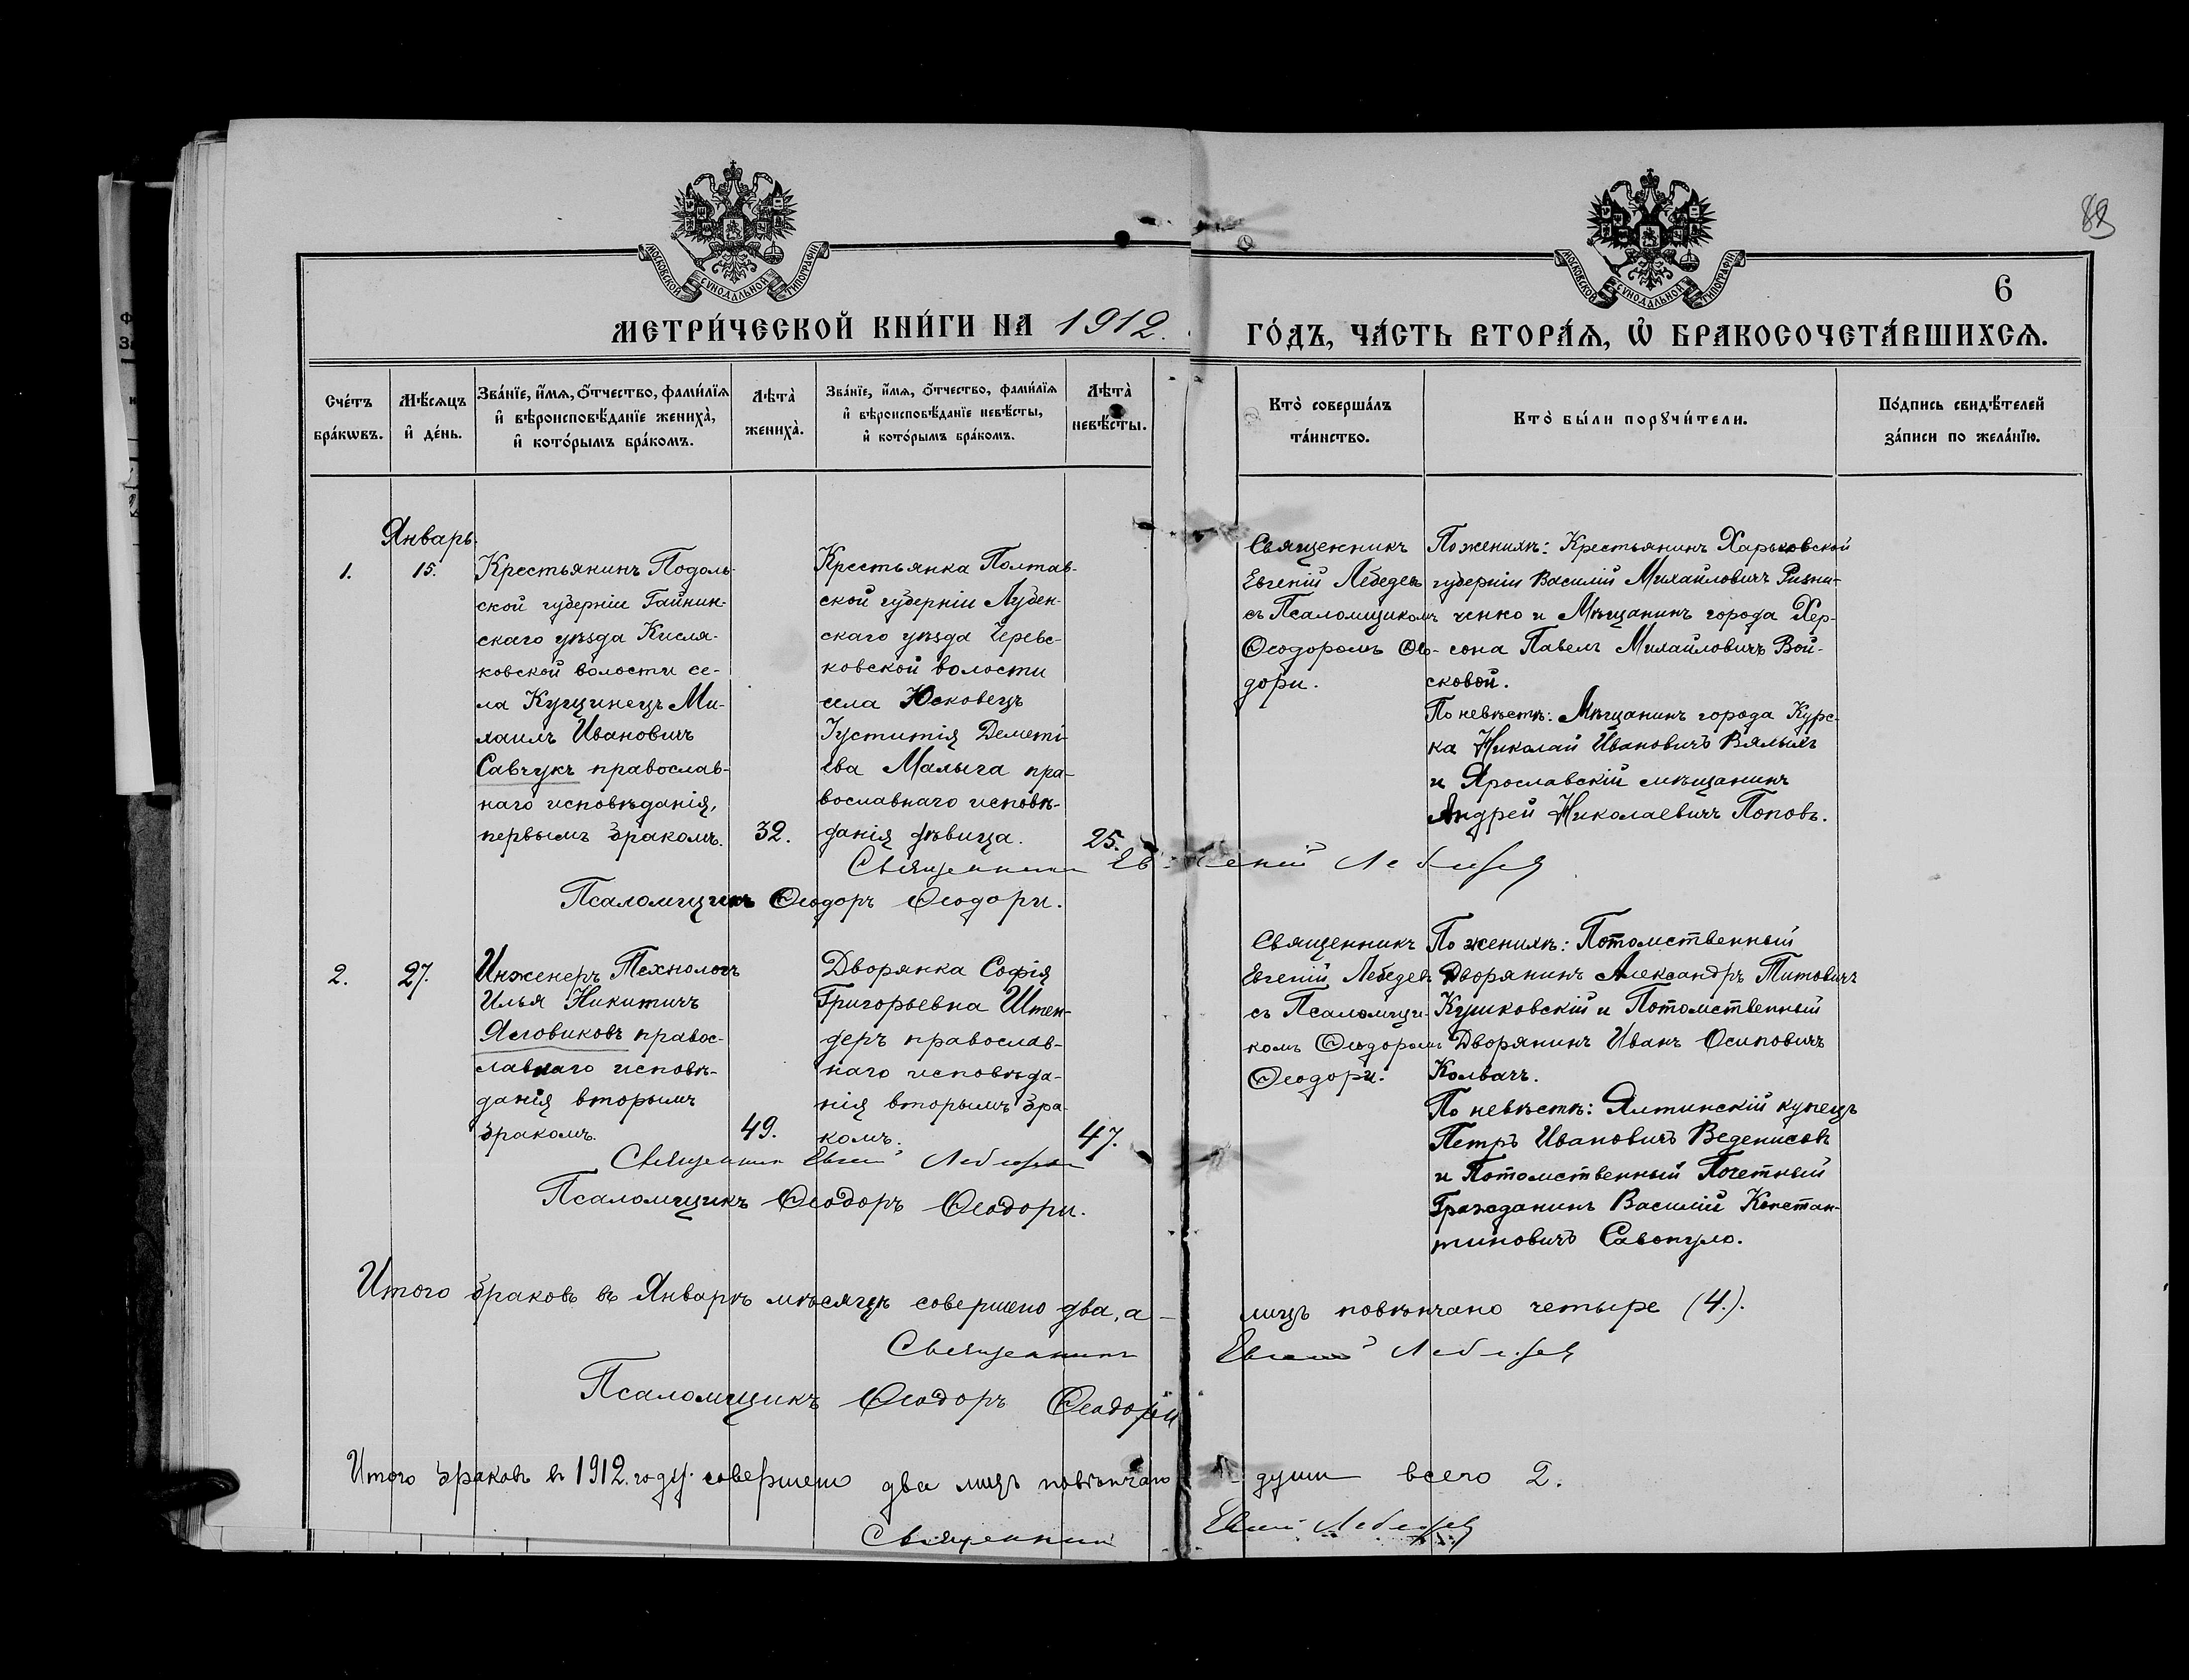 МОСКОВСКОЙ СѴНОДАЛЬНОЙ ТИПОГРАФІИ
МОСКОВСКОЙ СѴНОДАЛЬНОЙ ТИПОГРАФІИ
6
МЕТРИ́ЧЕСКОЙ КНИ́ГИ НА 1912.
ГО́ДЪ, ЧА́СТЬ ВТОРА́Ѧ, Ѡ҆ БРАКОСОЧЕТА́ВШИХСѦ.
Сче́тъ
бра́кѡвъ.
Мѣ́сѧцъ
и҆ де́нь.
Зва́нїе, и҆́мѧ, ѻ҆́тчество, фами́лїѧ
и҆ вѣроисповѣ́данїе жениха̀,
и҆ кото́рымъ бра́комъ.
Лѣта̀
жениха̀.
Зва́нїе, и҆́мѧ, ѻ҆́тчество, фами́лїѧ
и҆ вѣроисповѣ́данїе невѣ́сты,
и҆ кото́рымъ бра́комъ.
Лѣта̀
невѣ́сты.
Кто̀ соверша́лъ
та́инство.
Кто̀ бы́ли порꙋчи́тели.
По́дпись свидѣ́телей
за́писи по жела́нїю.
Январь.
1.
15.
Крестьянинъ Подоль-
ской губерніи Гайнин-
скаго уѣзда Кисля-
ковской волости се-
ла Кущинецъ Ми-
хаилъ Ивановичъ
Савчукъ православ-
наго исповѣданія,
первымъ бракомъ.
32.
Крестьянка Полтав-
ской губерніи Лубен-
скаго уѣзда Черевс-
ковской волости
села Юсковецъ
Іустинія Деметі-
ева Малыга пра-
вославнаго исповѣ-
данія дѣвица.
25.
Священникъ
Евгеній Лебедевъ
съ Псаломщикомъ
Ѳеодоромъ Ѳео-
дори.
По женихѣ: Крестьянинъ Харьковской
губерніи Василій Михайловичъ Ризни-
ченко и Мѣщанинъ города Хер-
сона Павелъ Михайловичъ Вой-
сковой.
По невѣстѣ: Мѣщанинъ города Курс-
ка Николай Ивановичъ Вялыхъ
и Ярославскій мѣщанинъ
Андрей Николаевичъ Поповъ.
Священникъ Евгеній Лебедев
Псаломщикъ Ѳеодоръ Ѳеодори.
2.
27.
Инженеръ Технологъ
Илья Никитичъ
Яловиковъ правос-
лавнаго исповѣ-
данія вторымъ
бракомъ.
49.
Дворянка Софія
Григорьевна Штен-
деръ православ-
наго исповѣда-
нія вторымъ бра-
комъ.
47.
Священникъ
Евгеній Лебедевъ
съ Псаломщи-
комъ Ѳеодоромъ
Ѳеодори.
По женихѣ: Потомственный
Дворянинъ Александръ Титовичъ
Кушковскій и Потомственный
Дворянинъ Иванъ Осиповичъ
Колвачъ.
По невѣстѣ: Ялтинскій купецъ
Петръ Ивановичъ Веденисовъ
и Потомственный Почетный
Гражданинъ Василій Констан-
тиновичъ Савопуло.
Священник Евгеній Лебедев
Псаломщикъ Ѳеодоръ Ѳеодори.
Итого браковъ въ Январѣ мѣсяцѣ совершено два, а лицъ повѣнчано четыре (4.).
Священникъ Евгеній Лебедев
Псаломщикъ Ѳеодоръ Ѳеодори
Итого браковъ въ 1912. году. совершено два лицъ повѣнчано души всего 2.
Священник Евгеній Лебедев